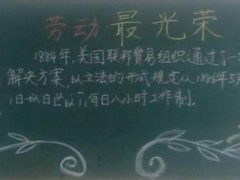 劳动最光荣
1884年,美国联邦贸易组织通过了一
解决方案,以立法的形式规定从1886年5
1日以日为有日八小时工作制。